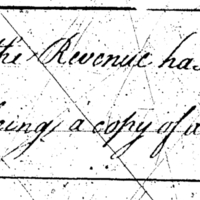 the Revenue has
being a copy of a